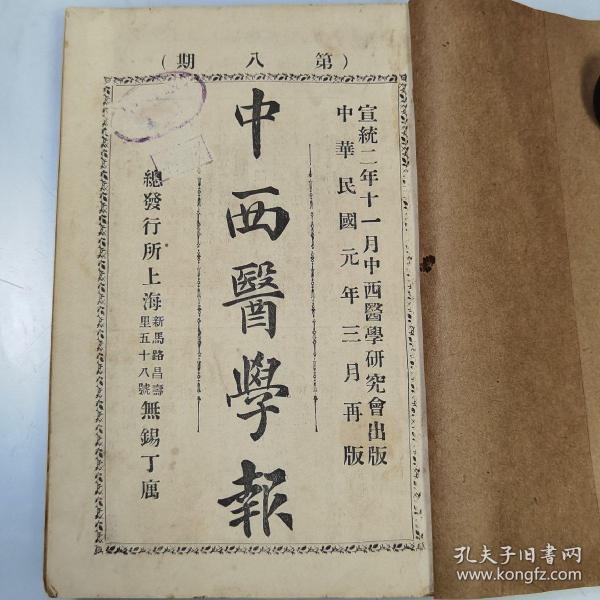 （第八期）
宣統二年十一月中西醫學研究會出版
中華民國元年三月再版
中西醫學報
總發行所上海新馬路昌壽里五十八號無錫丁寓
孔夫子旧书网
www.kongfz.com